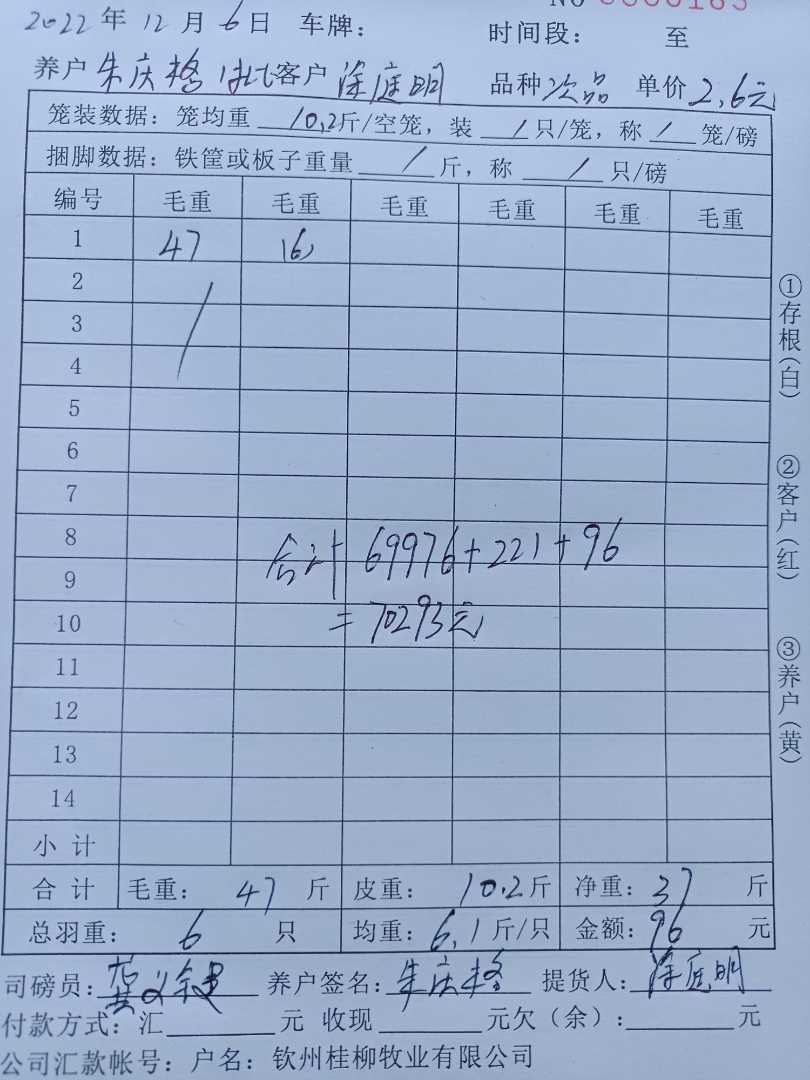 NO 0000183
2022年12月6日 车牌： 时间段： 至
养户 朱庆格 客户 涂庭明 品种 次品 单价 2.6元
笼装数据：笼均重 10.2斤/空笼，装 / 只/笼，称 / 笼/磅
捆脚数据：铁筐或板子重量 / 斤，称 / 只/磅
编号 毛重 毛重 毛重 毛重 毛重 毛重
1 47 (6)
2
3
4
5
6
7
8
合计 69976+221+96
9
10 =70293元
11
12
13
14
小计
合计 毛重： 47 斤 皮重： 10.2斤 净重：37 斤
总羽重： 6 只 均重：6.1斤/只 金额：96 元
司磅员： 养户签名：朱庆格 提货人：涂庭明
付款方式：汇 元 收现 元欠（余）： 元
公司汇款帐号：户名：钦州桂柳牧业有限公司
①存根（白）
②客户（红）
③养户（黄）